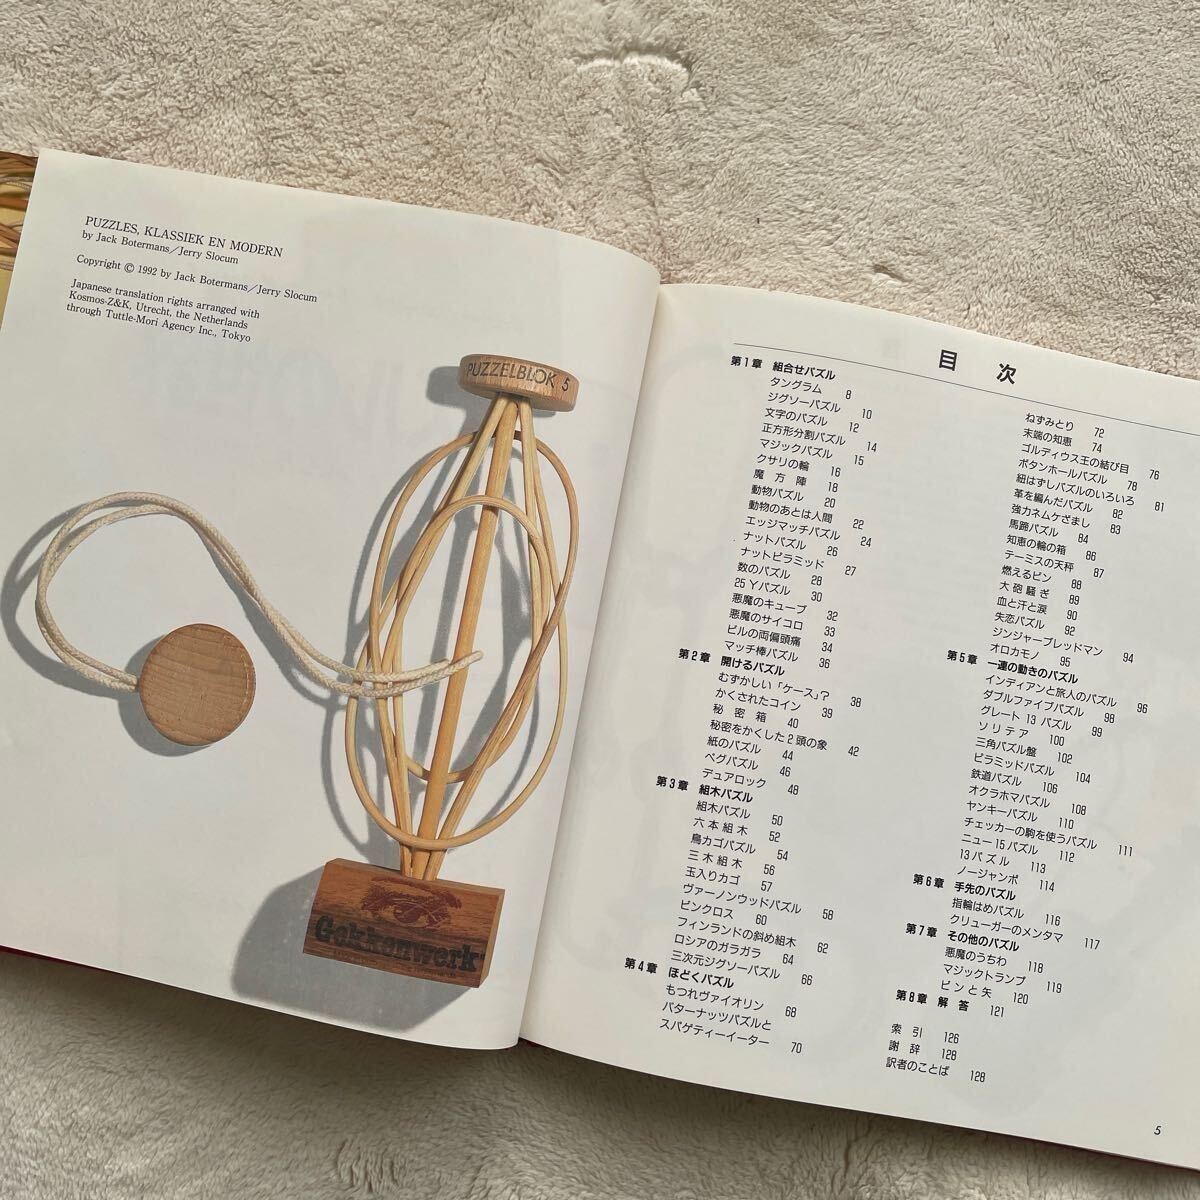 PUZZLES, KLASSIEK EN MODERN
by Jack Botermans／Jerry Slocum
Copyright © 1992 by Jack Botermans／Jerry Slocum
Japanese translation rights arranged with
Kosmos-Z&K, Utrecht, the Netherlands
through Tuttle-Mori Agency Inc., Tokyo
PUZZELBLOK 5
Gekkenwerk
目次
第1章 組合せパズル
タングラム 8
ジグソーパズル 10
文字のパズル 12
正方形分割パズル 14
マジックパズル 15
クサリの輪 16
魔方陣 18
動物パズル 20
動物のあとは人間 22
エッジマッチパズル 24
ナットパズル 26
ナットピラミッド 27
数のパズル 28
25 Yパズル 30
悪魔のキューブ 32
悪魔のサイコロ 33
ビルの両偏頭痛 34
マッチ棒パズル 36
第2章 開けるパズル
むずかしい「ケース」? 38
かくされたコイン 39
秘密箱 40
秘密をかくした2頭の象 42
紙のパズル 44
ペグパズル 46
デュアロック 48
第3章 組木パズル
組木パズル 50
六本組木 52
鳥カゴパズル 54
三木組木 56
玉入りカゴ 57
ヴァーノンウッドパズル 58
ピンクロス 60
フィンランドの斜め組木 62
ロシアのガラガラ 64
三次元ジグソーパズル 66
第4章 ほどくパズル
もつれヴァイオリン 68
バターナッツパズルと
スパゲティーイーター 70
ねずみとり 72
末端の知恵 74
ゴルディウス王の結び目 76
ボタンホールパズル 78
紐はずしパズルのいろいろ 81
革を編んだパズル 82
強力ネムケざまし 83
馬蹄パズル 84
知恵の輪の箱 86
テーミスの天秤 87
燃えるピン 88
大砲騒ぎ 89
血と汗と涙 90
失恋パズル 92
ジンジャーブレッドマン 94
オロカモノ 95
第5章 一連の動きのパズル
インディアンと旅人のパズル 96
ダブルファイブパズル 98
グレート13パズル 99
ソリテア 100
三角パズル盤 102
ピラミッドパズル 104
鉄道パズル 106
オクラホマパズル 108
ヤンキーパズル 110
チェッカーの駒を使うパズル 111
ニュー15パズル 112
13パズル 113
ノージャンボ 114
第6章 手先のパズル
指輪はめパズル 116
クリューガーのメンタマ 117
第7章 その他のパズル
悪魔のうちわ 118
マジックトランプ 119
ピンと矢 120
第8章 解答 121
索引 126
謝辞 128
訳者のことば 128
5